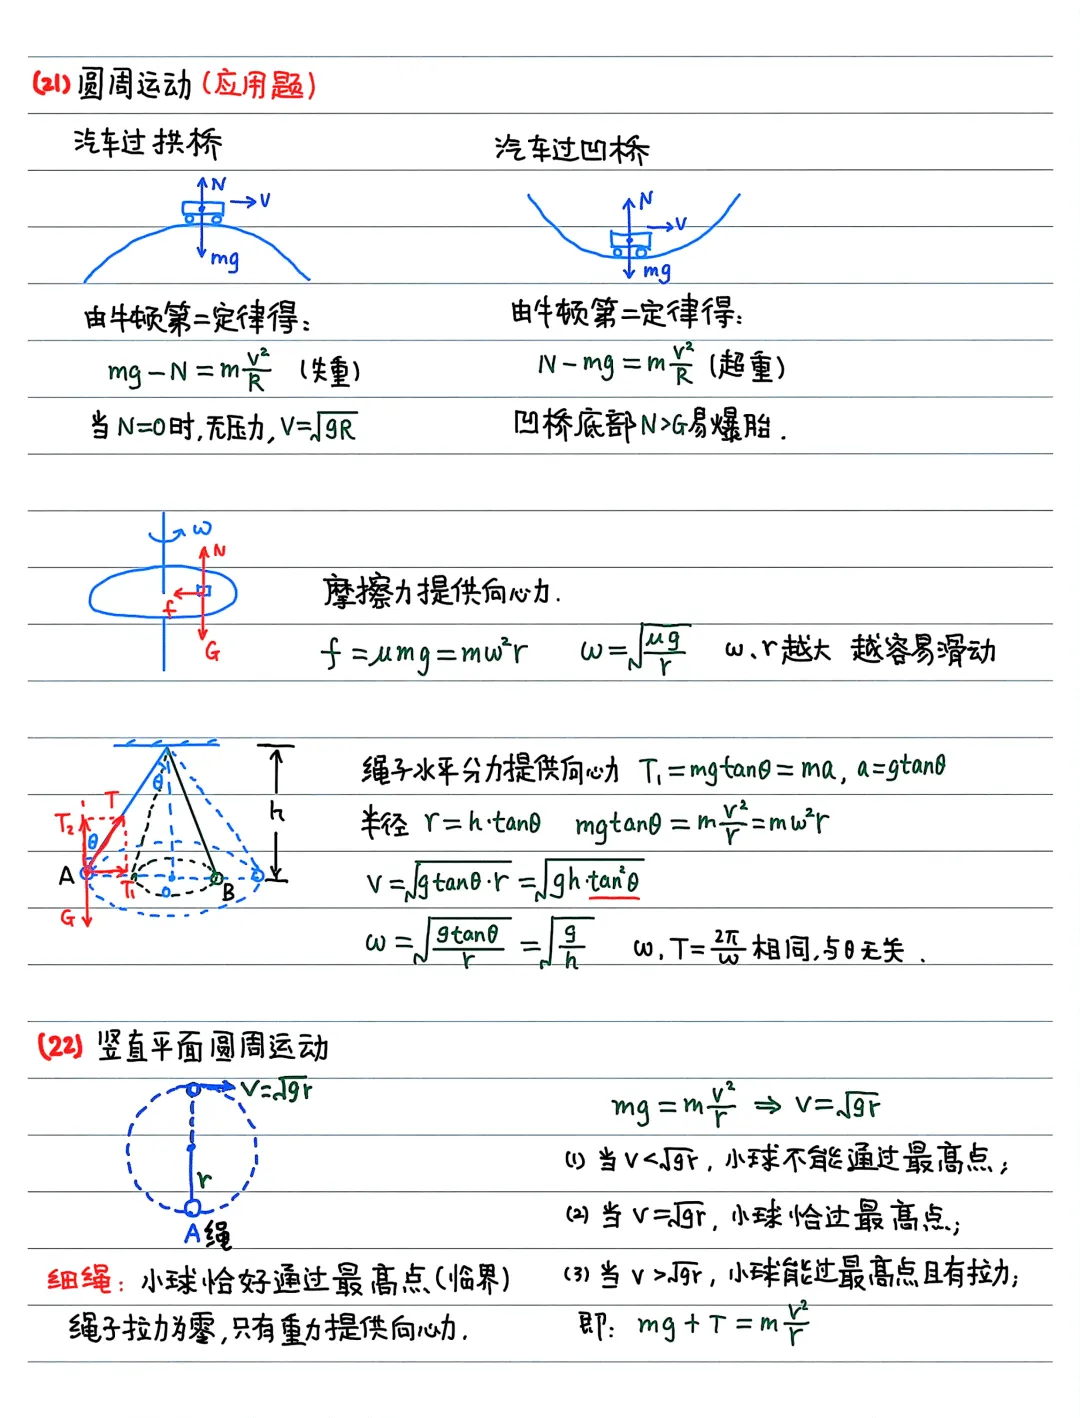 (21) 圆周运动 (应用题)
汽车过拱桥
N
V
mg
由牛顿第二定律得:
mg－N = m v²/R (失重)
当N=0时,无压力, V=√gR
汽车过凹桥
N
V
mg
由牛顿第二定律得:
N－mg = m v²/R (超重)
凹桥底部N>G易爆胎.
ω
N
f
G
摩擦力提供向心力.
f = μmg = mω²r ω=√(μg/r) ω、r越大 越容易滑动
θ
T
T₂
θ
h
A
T₁
O
B
G
绳子水平分力提供向心力 T₁=mgtanθ=ma, a=gtanθ
半径 r=h·tanθ mgtanθ = m v²/r = mω²r
V=√gtanθ·r =√gh·tan²θ
ω=√(gtanθ/r) =√(g/h) ω, T=2π/ω 相同,与θ无关.
(22) 竖直平面圆周运动
V=√gr
r
A 绳
细绳: 小球恰好通过最高点(临界)
绳子拉力为零,只有重力提供向心力.
mg = m v²/r ⇒ V=√gr
(1) 当V<√gr, 小球不能通过最高点;
(2) 当V=√gr, 小球恰过最高点;
(3) 当V>√gr, 小球能过最高点且有拉力;
即: mg+T = m v²/r